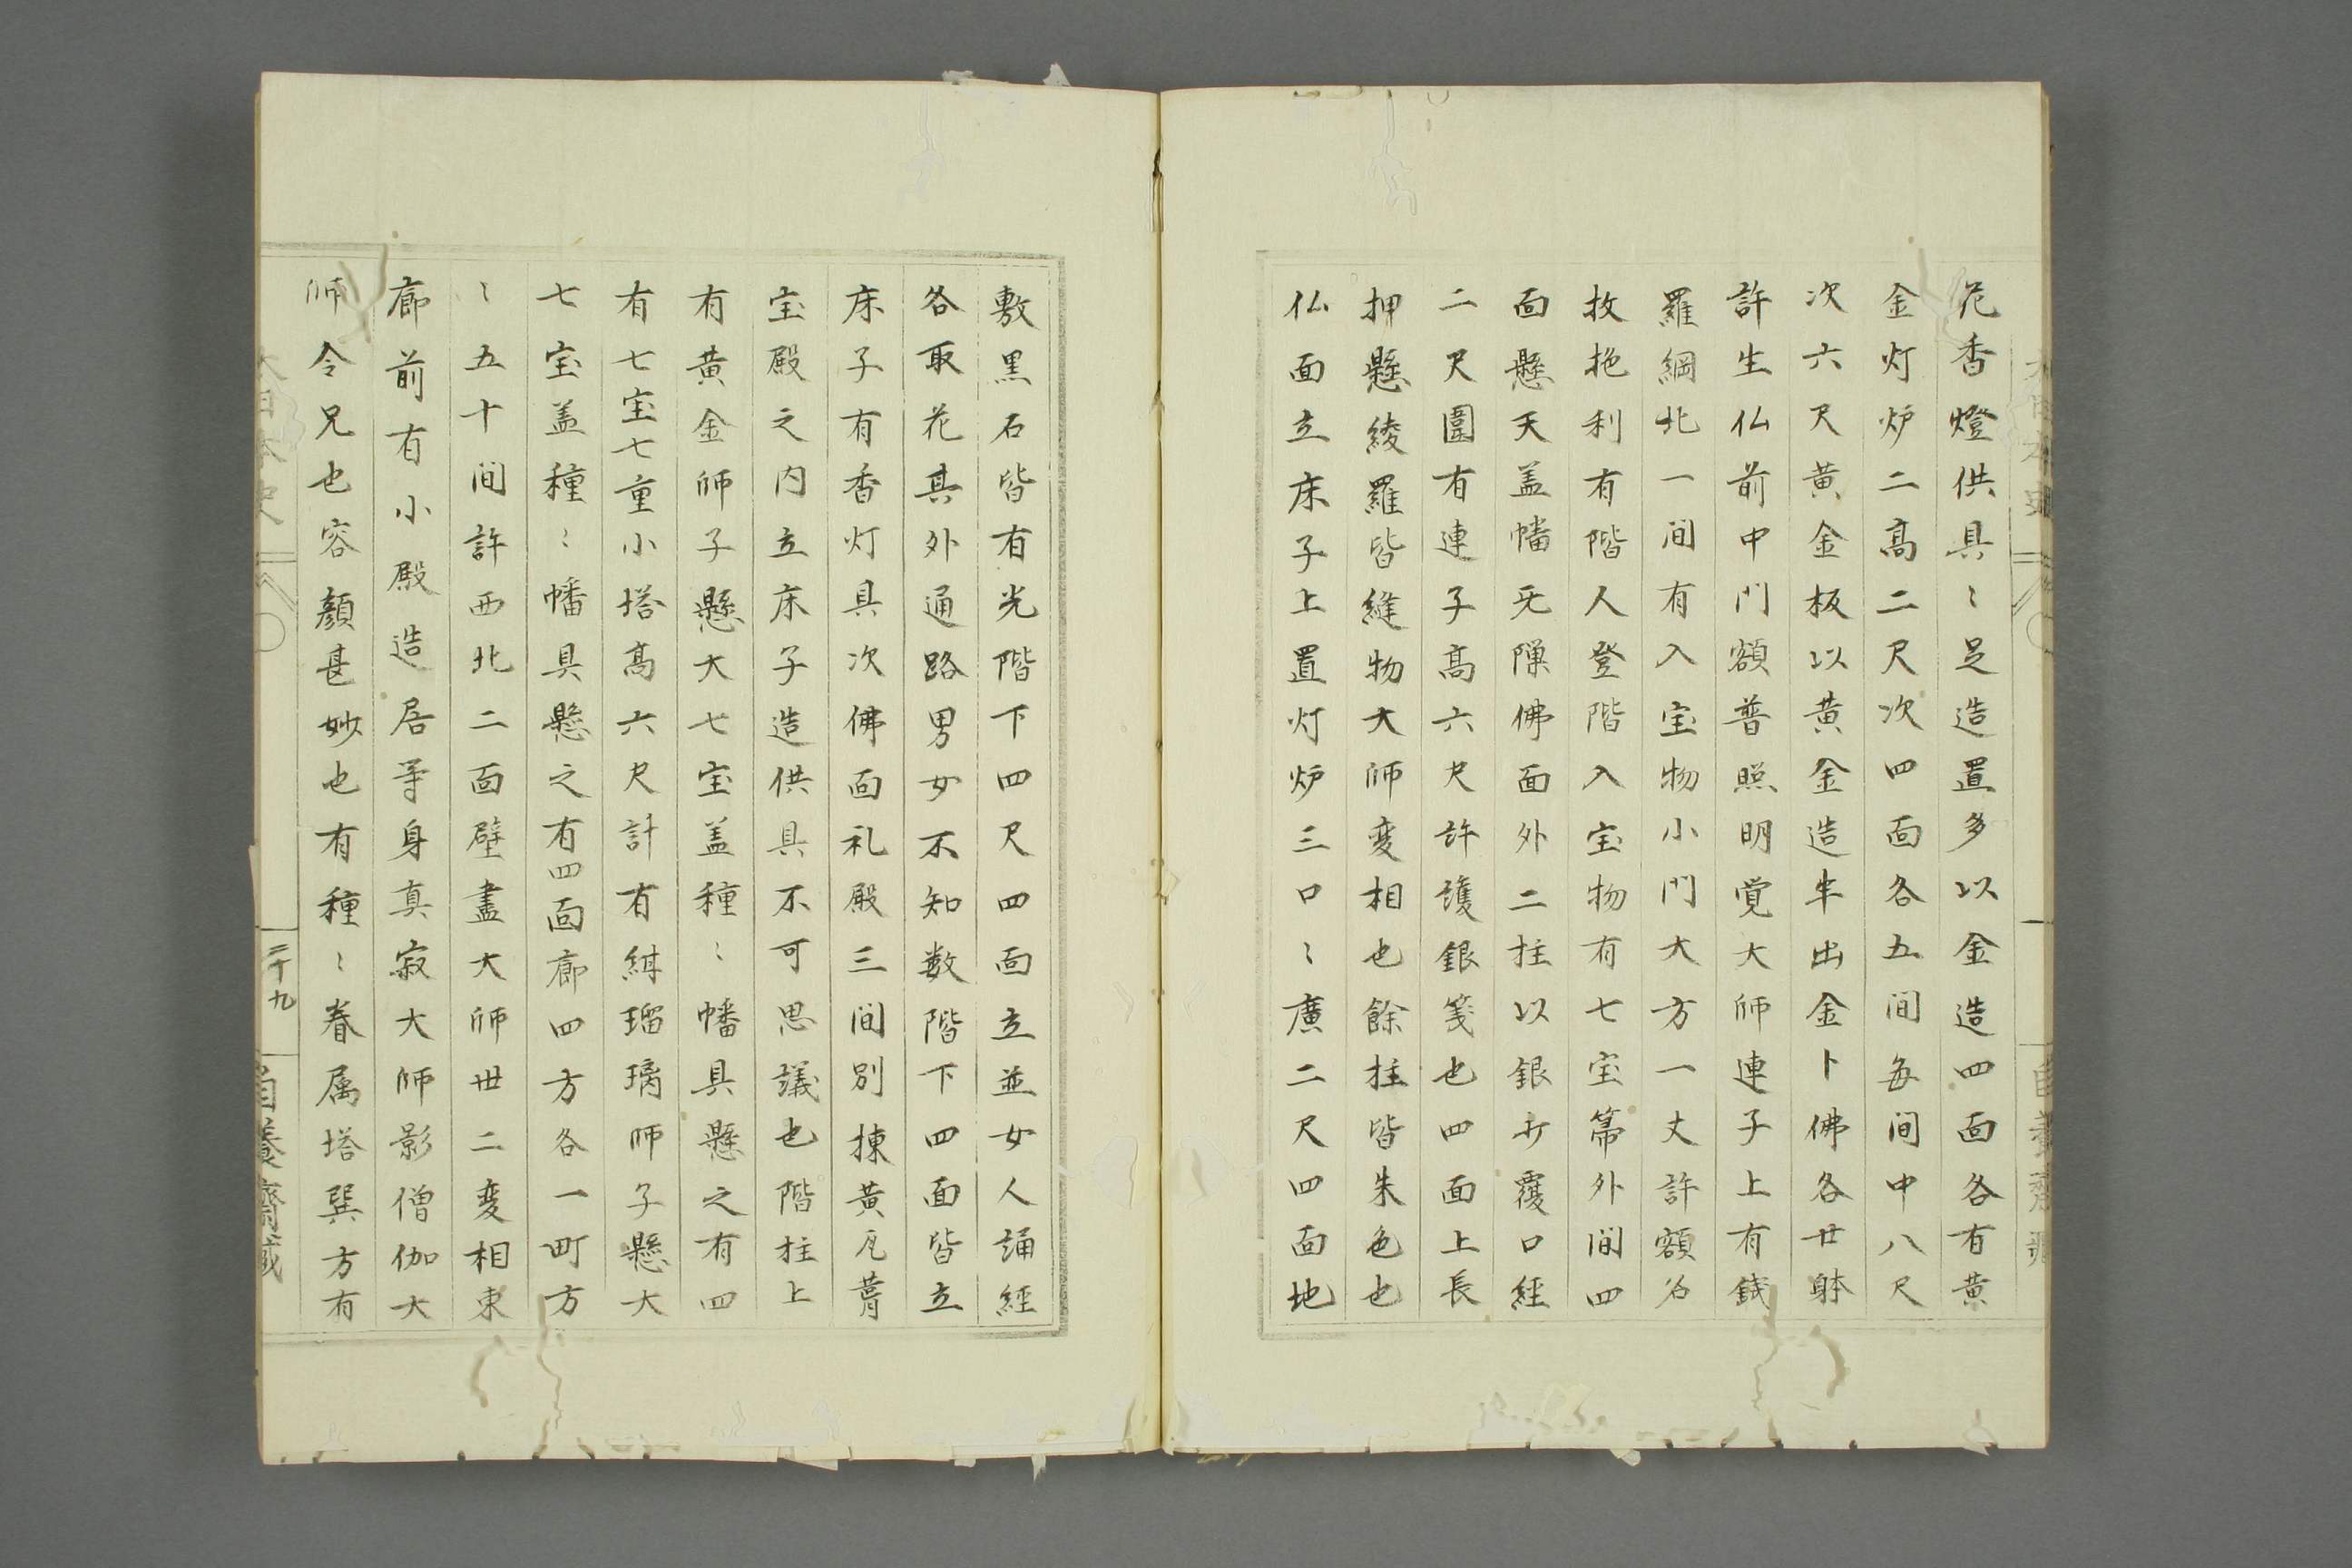 花香燈供具〻足造置多以金造四面各有黄
金灯炉二高二尺次四面各五间每间中八尺
次六尺黄金板以黄金造半出金卜佛各廿躰
許生仏前中門額普照明覚大師連子上有銭
羅網北一间有入宝物小門大方一丈許額名
抜抱利有階人登階入宝物有七宝箒外间四
面懸天盖幡无隙佛面外二柱以銀少覆口経
二尺圍有連子高六尺許護銀箋也四面上長
押懸綾羅皆縫物大師変相也餘柱皆朱色也
仏面立床子上置灯炉三口〻廣二尺四面地
敷黒石皆有光階下四尺四面立並女人誦経
各取花其外通路男女不知数階下四面皆立
床子有香灯具次佛面礼殿三间別棟黄瓦葺
宝殿之内立床子造供具不可思議也階柱上
有黄金師子懸大七宝盖種〻幡具懸之有四
有七宝七重小塔高六尺計有紺瑠璃師子懸大
七宝盖種〻幡具懸之有四面廊四方各一町方
〻五十间許西北二面壁畫大師丗二変相東
廊前有小殿造居等身真寂大師影僧伽大
師令兄也容顔甚妙也有種〻眷属塔巽方有
大日本史
二十九
自養齋藏